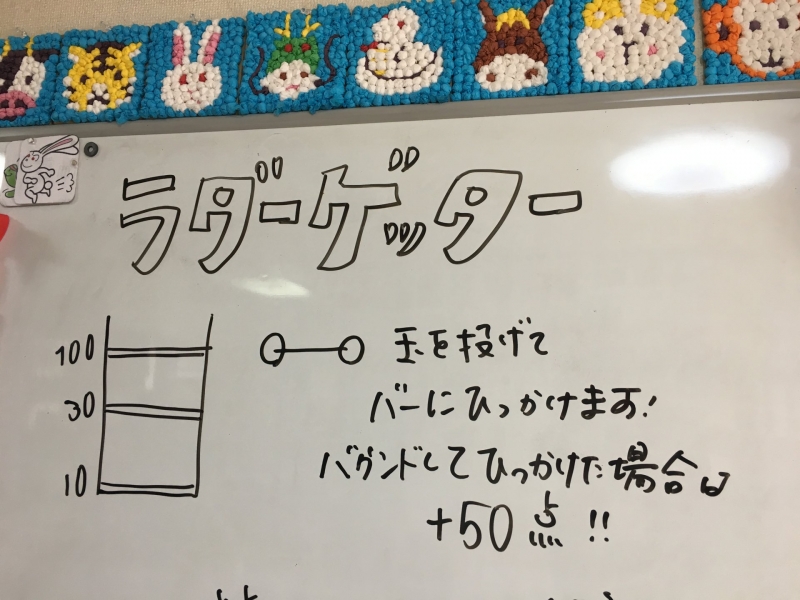 ラダーゲッター
100
30
10
玉を投げて
バーにひっかけます!
バウンドしてひっかけた場合は
+50点!!